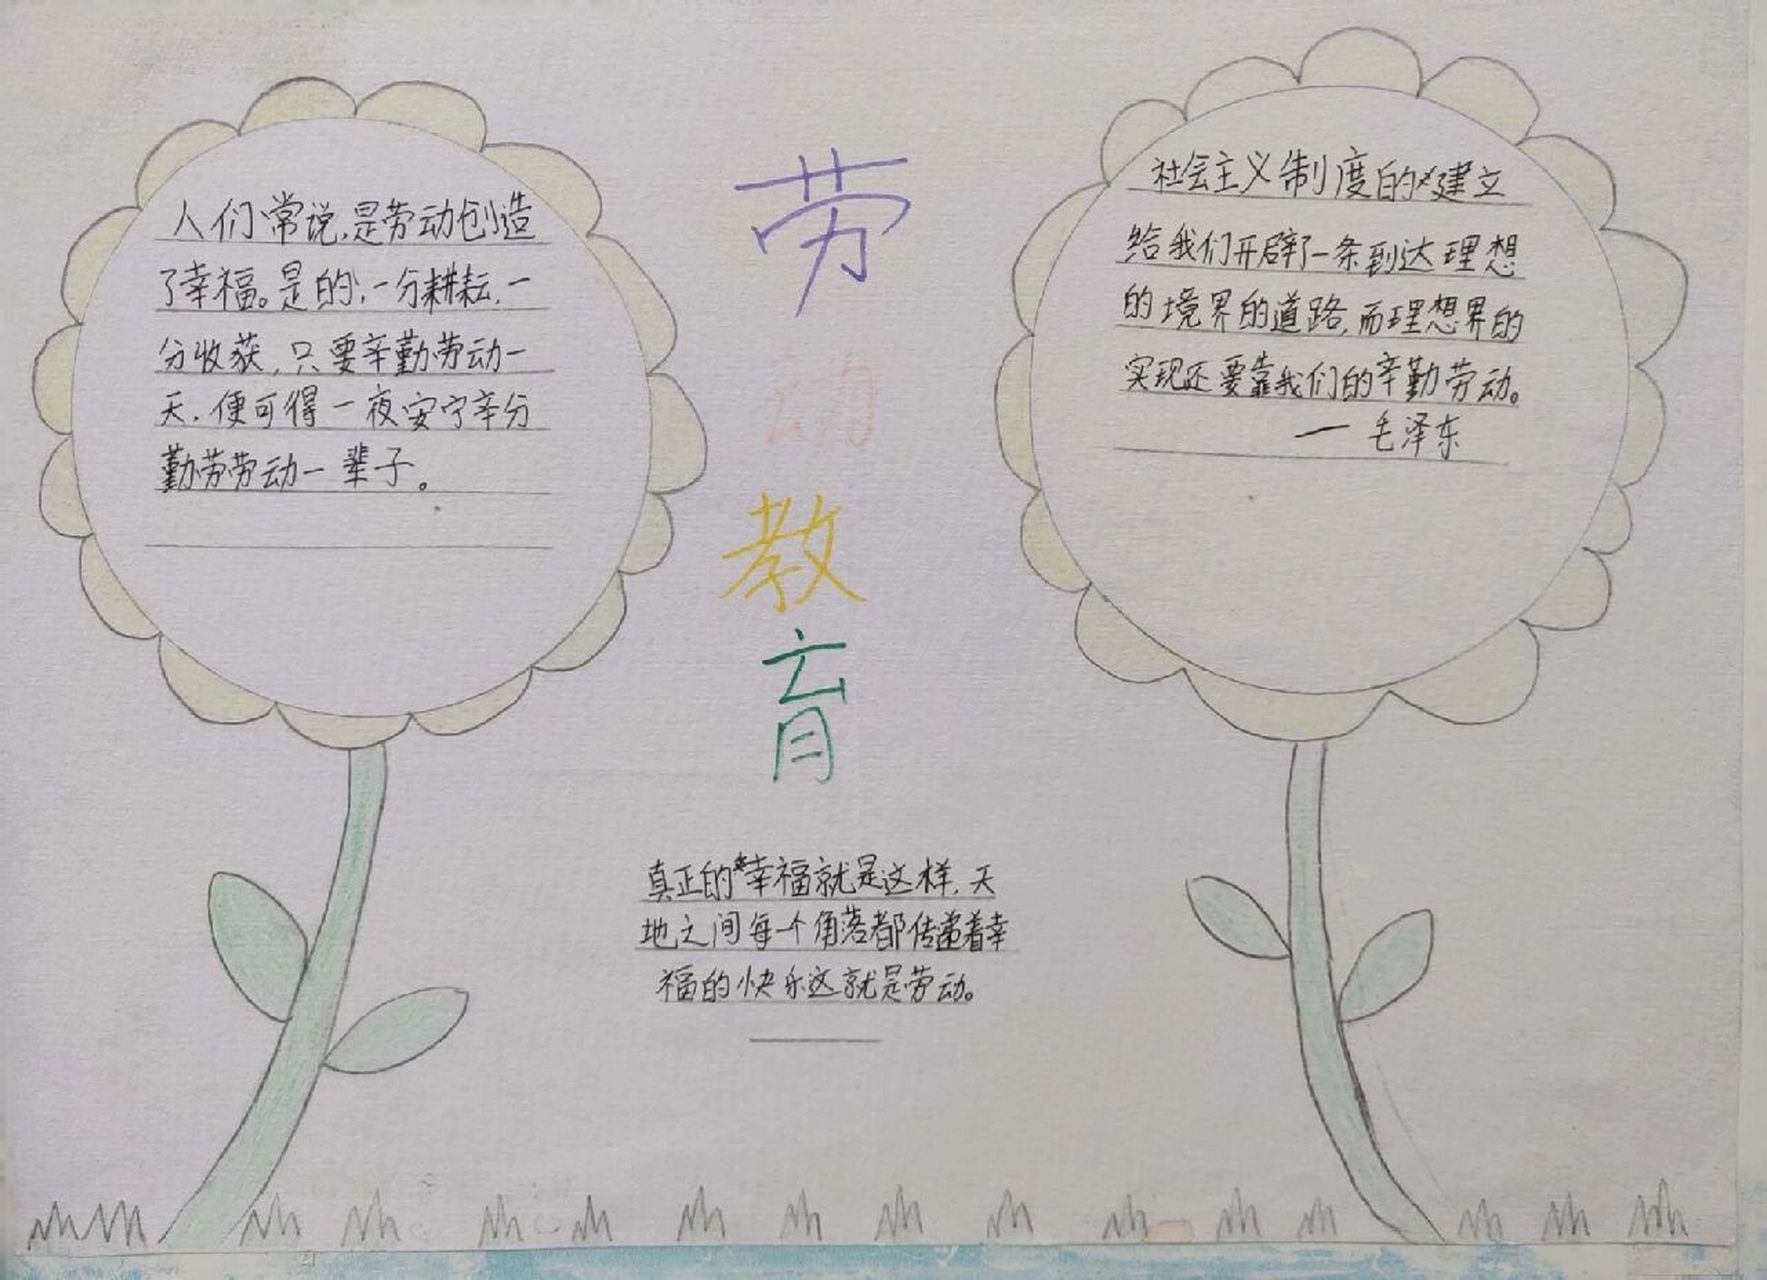 人们常说,是劳动创造
了幸福。是的,一分耕耘,一
分收获,只要辛勤劳动一
天,便可得一夜安宁辛分
勤劳劳动一辈子。
劳
动
教
育
真正的幸福就是这样,天
地之间每一个角落都传递着幸
福的快乐这就是劳动。
社会主义制度的建立
给我们开辟了一条到达理想
的境界的道路,而理想界的
实现还要靠我们的辛勤劳动。
— 毛泽东